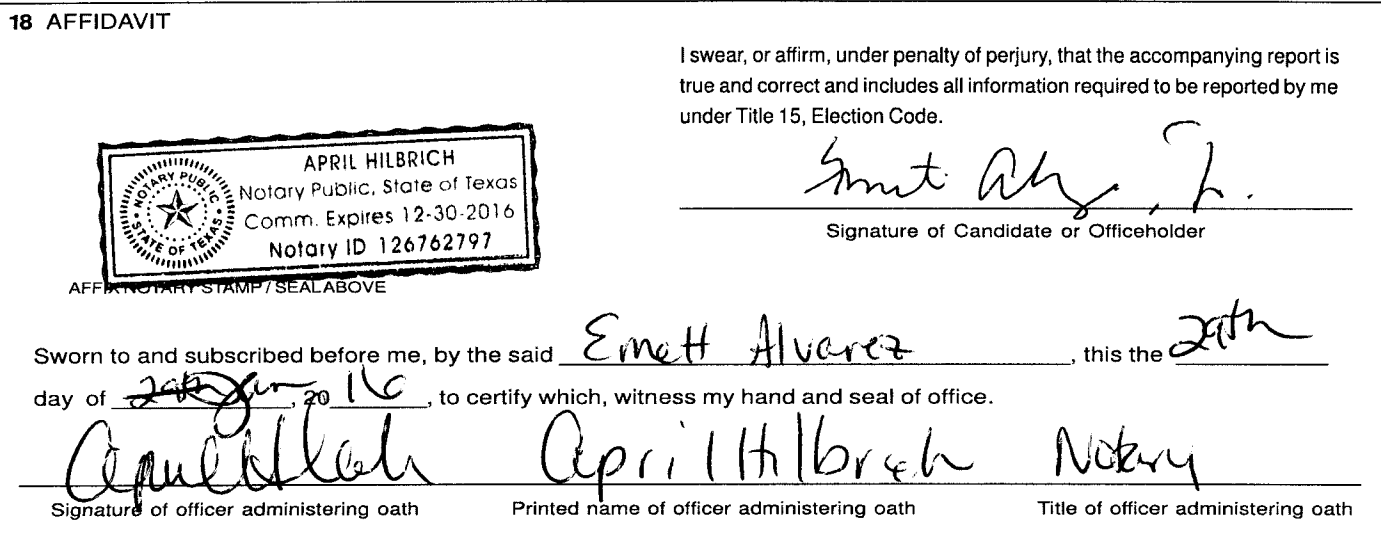 18 AFFIDAVIT
I swear, or affirm, under penalty of perjury, that the accompanying report is
true and correct and includes all information required to be reported by me
under Title 15, Election Code.
APRIL HILBRICH
Notary Public, State of Texas
Comm. Expires 12-30-2016
Notary ID 126762797
NOTARY PUBLIC
STATE OF TEXAS
Signature of Candidate or Officeholder
AFFIX NOTARY STAMP / SEAL ABOVE
Sworn to and subscribed before me, by the said Emett Alvarez, this the 29th
day of Jan, 20 16, to certify which, witness my hand and seal of office.
April Hilbrich Notary
Signature of officer administering oath Printed name of officer administering oath Title of officer administering oath